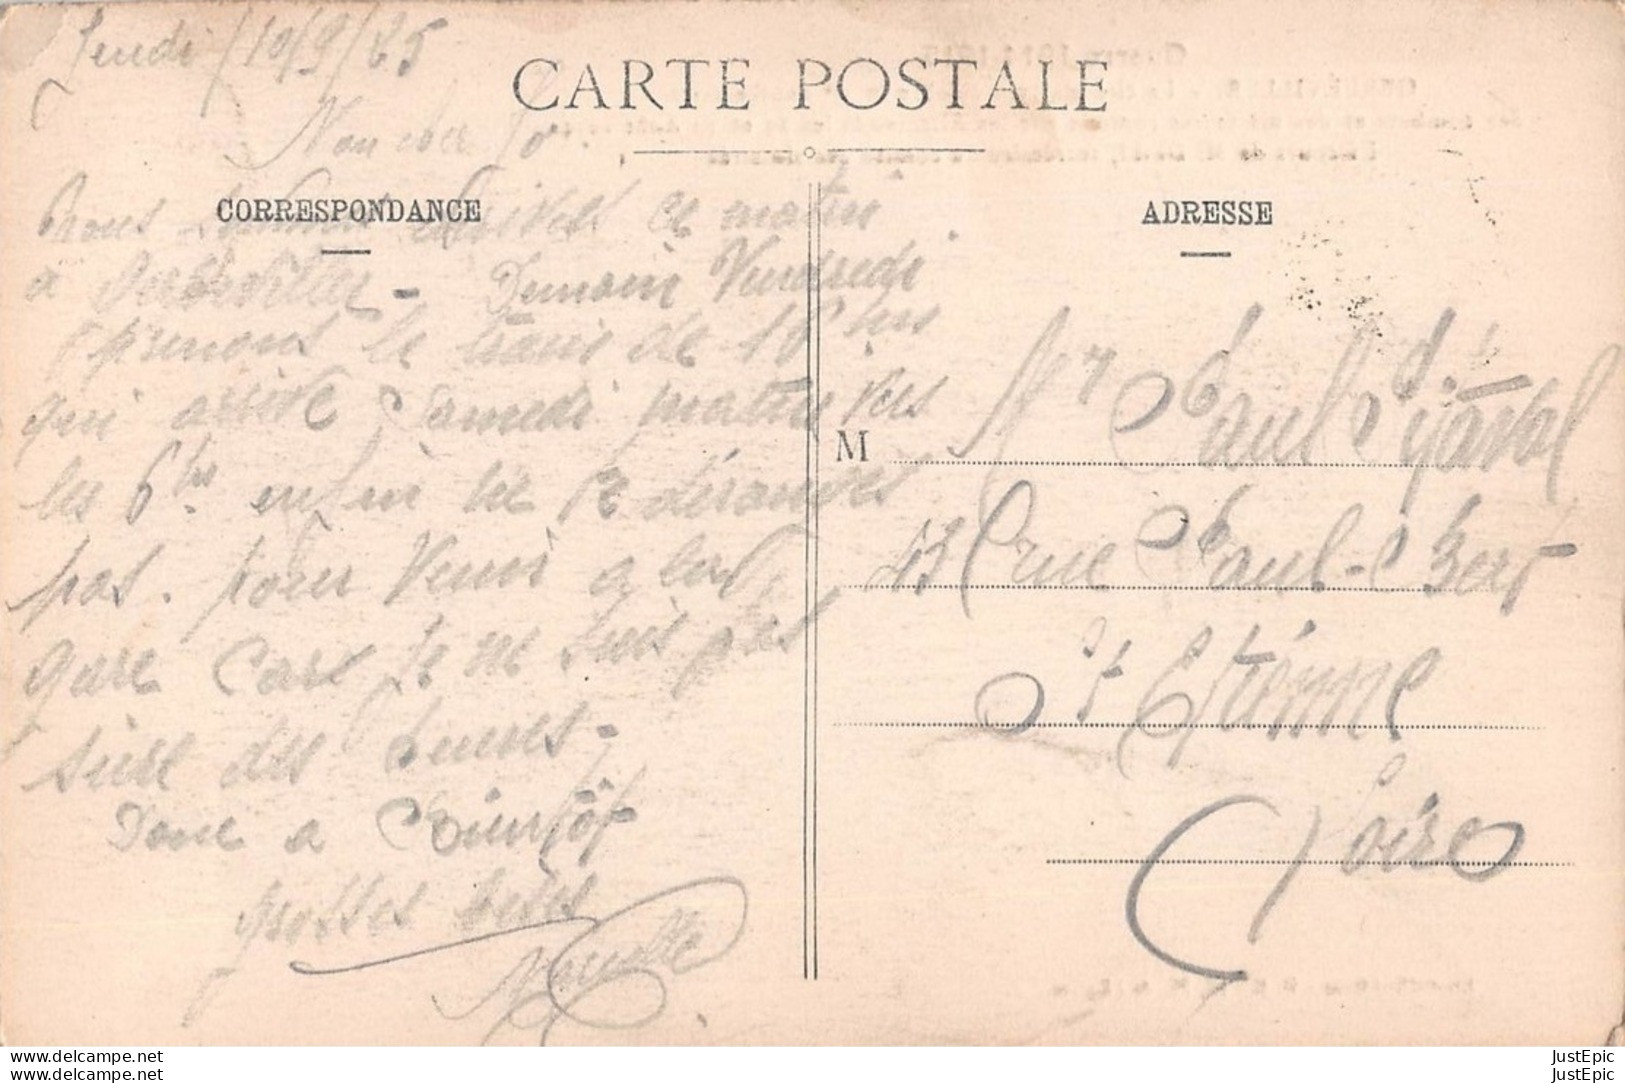 Jeudi 10/9/25
CARTE POSTALE
Mon cher
CORRESPONDANCE
ADRESSE
nous sommes arrivés ce matin
a Gerbeviller - Demain Vendredi
prenons le train de 16 hrs
qui arrive Samedi matin vers
les 6 hrs enfin ne te déranges
pas. pour venir a la
gare car je ne suis pas
sure des heures -
Donc a Bientôt
grosses bises
M
Mr Paul
43 rue Paul-Bert
St Etienne
Loire
www.delcampe.net
www.delcampe.net
JustEpic
JustEpic